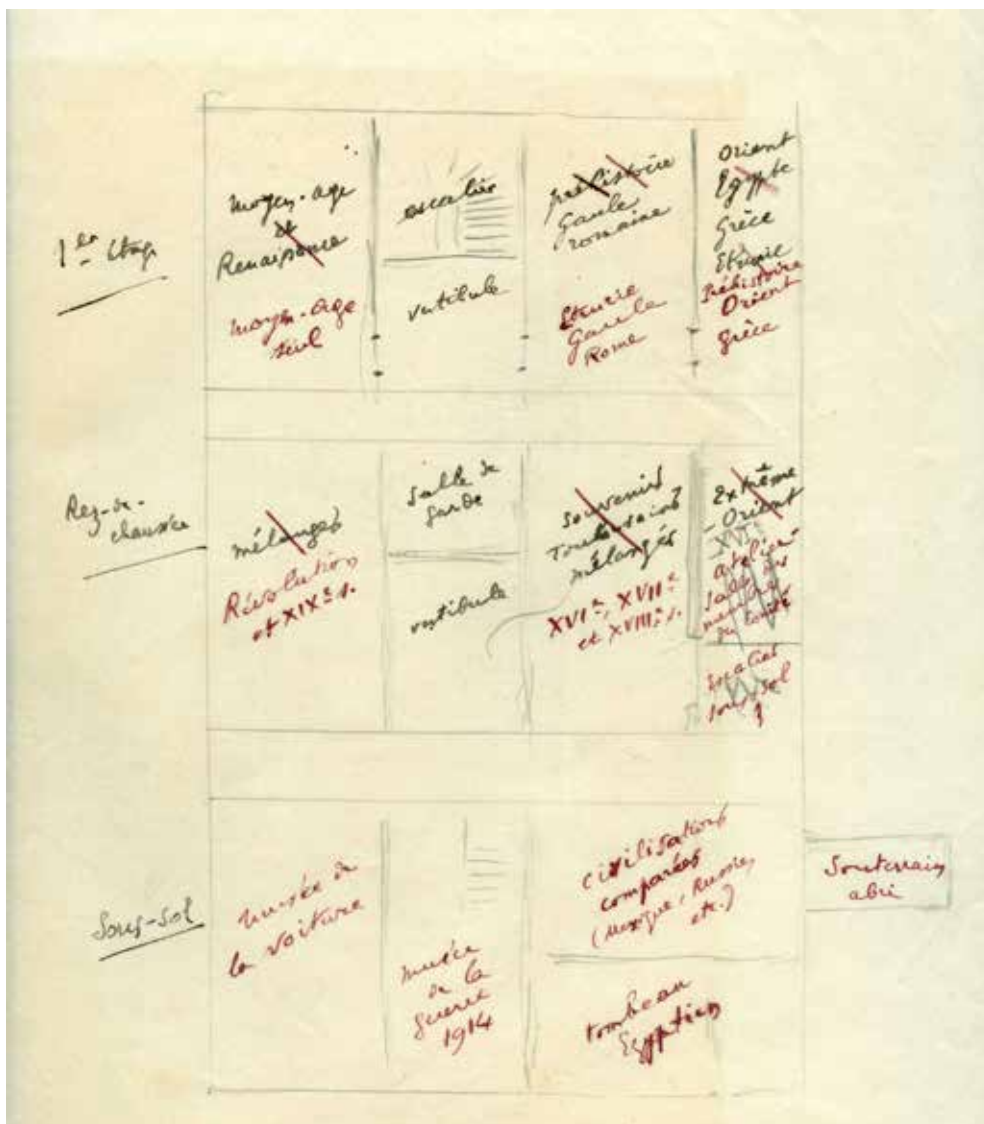 1er Etage
moyen-age
et
Renaissance
moyen-age
seul
escalier
vestibule
préhistoire
Gaule
romaine
Etrurie
Gaule
Rome
Orient
Egypte
Grèce
Etrurie
Préhistoire
Orient
Grèce
Rez-de-
chaussée
mélanges
Révolution
et XIXe s.
Salle de
garde
vestibule
Souvenirs
Toulousains
mélangés
XVIe, XVIIe
et XVIIIe s.
Extrême
-Orient
XVIe
atelier
salle des
membres
du comité
escalier
sous-sol
Sous-sol
musée de
la voiture
musée
de la
guerre
1914
civilisations
comparées
(Mexique, Russie,
etc.)
tombeau
Egyptien
Souterrain
abri